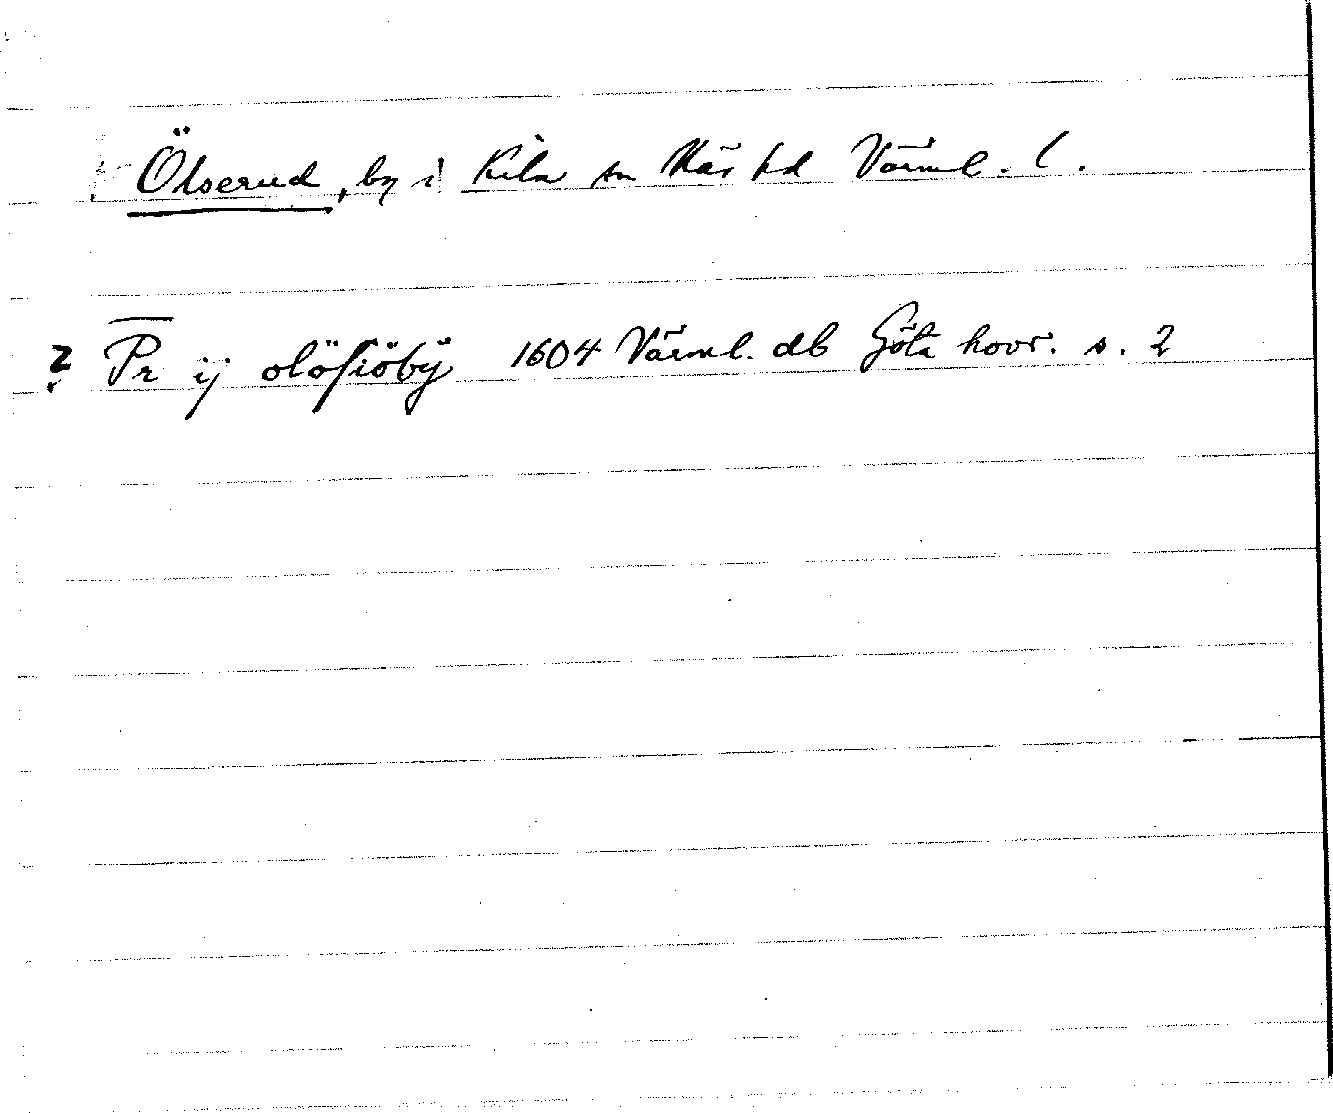 Ölserud, by i Kila sn Näs hd Värml. l.
? Pr ij olöfiöbÿ 1604 Värml. db Göta hovr. s. 2